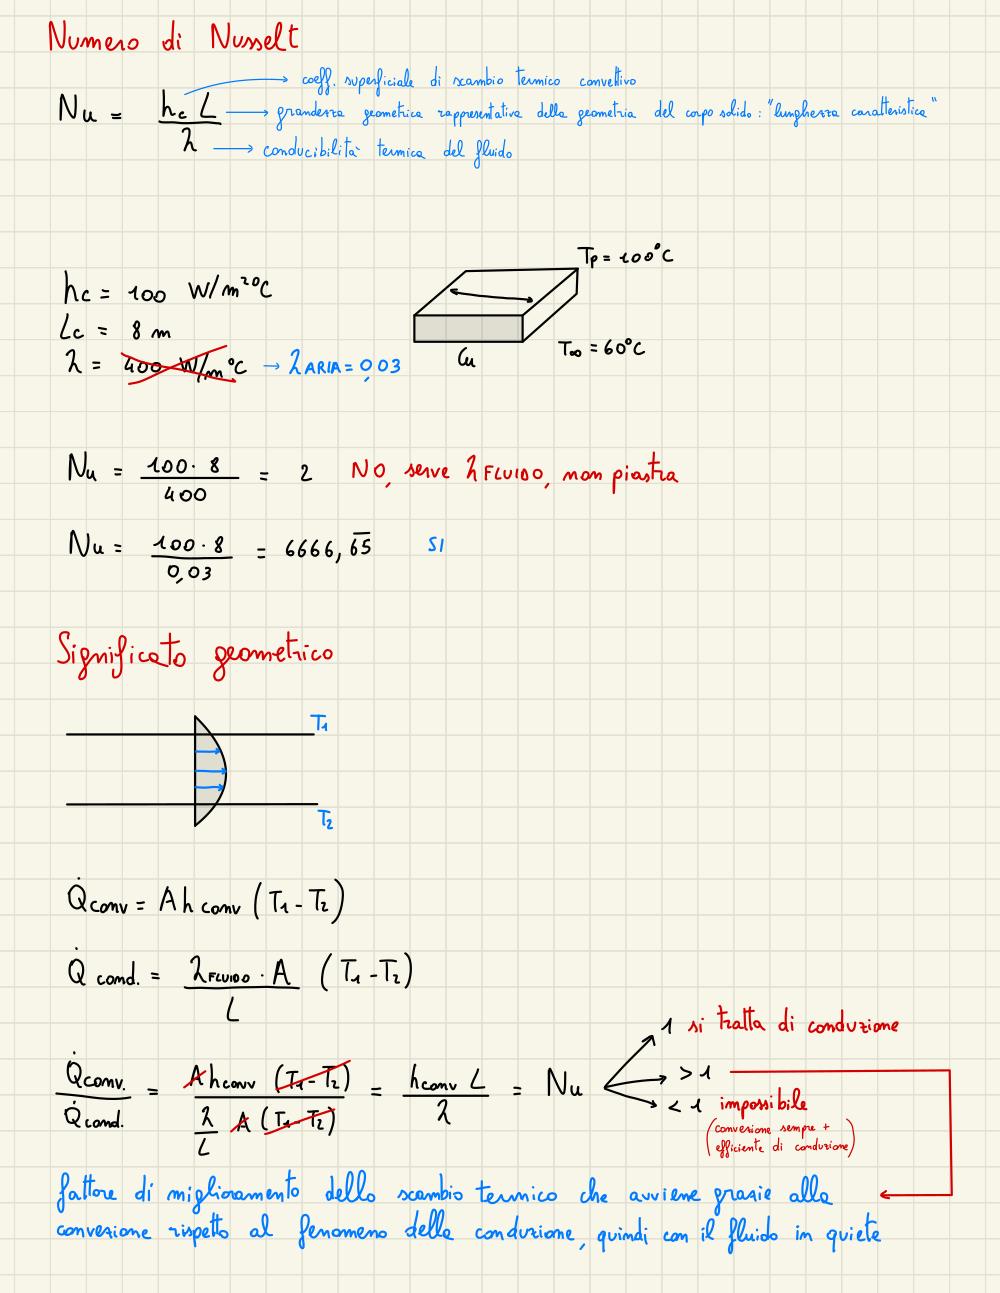 Numero di Nusselt
Nu = h_c L / λ
→ coeff. superficiale di scambio termico convettivo
→ grandezza geometrica rappresentativa della geometria del corpo solido: "lunghezza caratteristica"
→ conducibilità termica del fluido
Tp = 100°C
hc = 100 W/m²°C
Lc = 8 m
λ = 400 W/m°C → λ ARIA = 0,03
Cu
T∞ = 60°C
Nu = 100 · 8 / 400 = 2 NO, serve λ FLUIDO, non piastra
Nu = 100 · 8 / 0,03 = 6666,65 SI
Significato geometrico
T1
T2
Q̇conv = A h conv (T1 - T2)
Q̇ cond. = λ FLUIDO · A / L (T1 - T2)
Q̇conv. / Q̇cond. = A h conv (T1 - T2) / λ/L A (T1 - T2) = h conv L / λ = Nu
1 si tratta di conduzione
> 1
< 1 impossibile
(convezione sempre +
efficiente di conduzione)
fattore di miglioramento dello scambio termico che avviene grazie alla
convezione rispetto al fenomeno della conduzione, quindi con il fluido in quiete